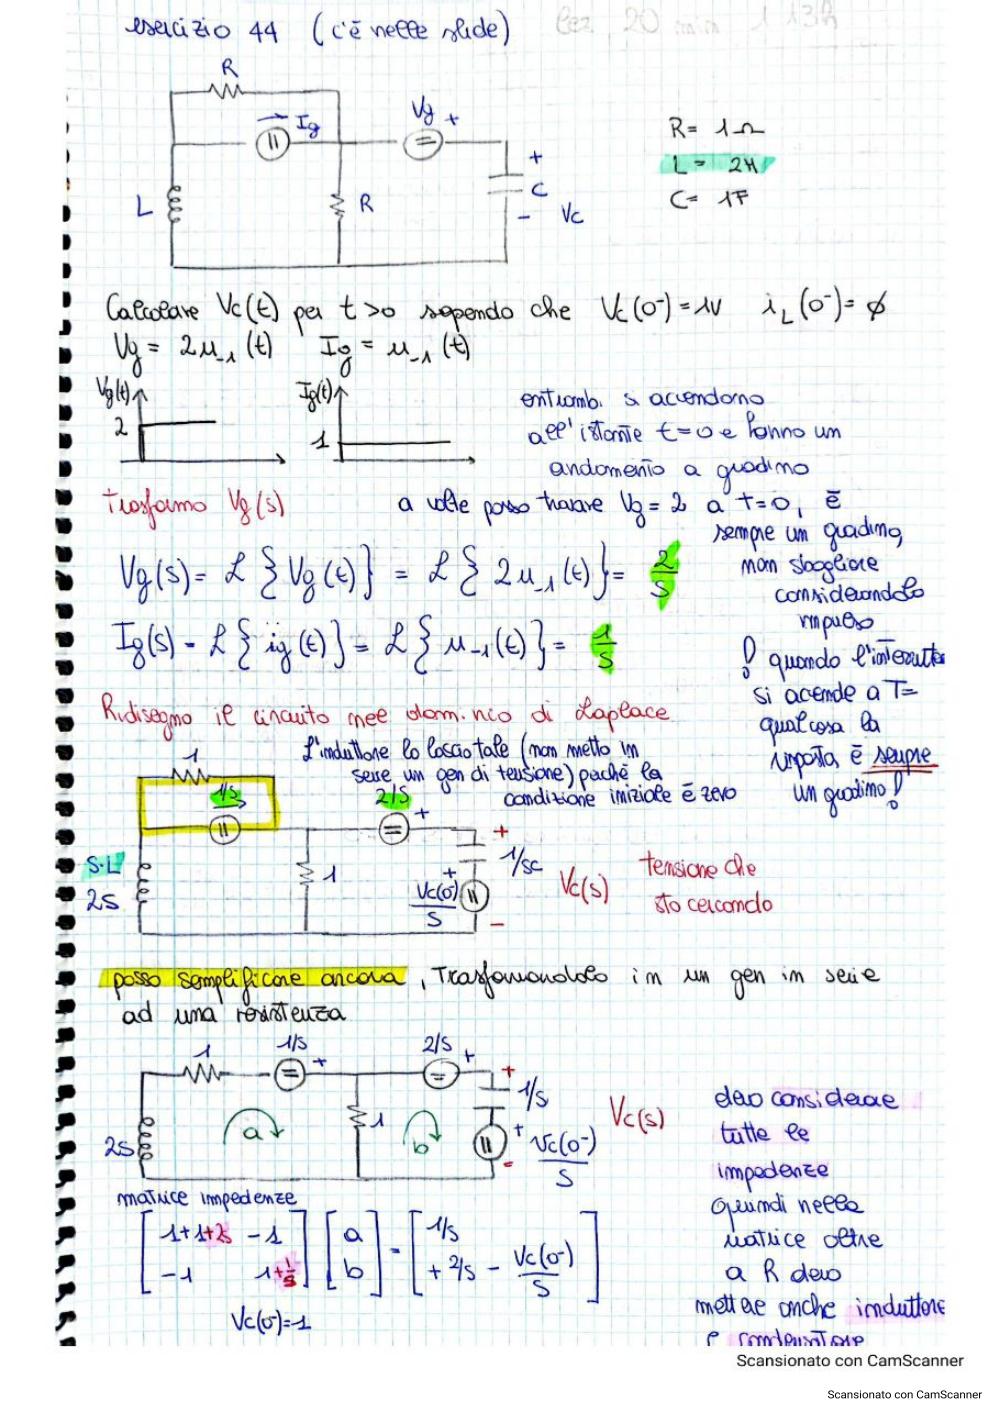 esercizio 44 (c'è nelle slide)
R
Ig
Vg +
L
R
+
C
-
Vc
R= 1Ω
L= 2H
C= 1F
Calcolare Vc(t) per t>0 sapendo che Vc(0⁻)=1V iL(0⁻)=∅
Vg = 2μ₋₁(t) Ig = μ₋₁(t)
Vg(t)
2
Ig(t)
1
entrambi si accendono
all'istante t=0 e hanno un
andamento a gradino
Trasformo Vg(s)
a volte posso trovare Vg=2 a t=0, è
sempre un gradino,
non sbagliare
considerandolo
impulso
Vg(s)= ℒ{Vg(t)} = ℒ{2μ₋₁(t)}= 2/s
Ig(s)= ℒ{ig(t)}= ℒ{μ₋₁(t)}= 1/s
! quando l'interruttore
si accende a T=
qualcosa la
risposta è sempre
un gradino!
Ridisegno il circuito nel dominio di Laplace
L'induttore lo lascio tale (non metto in
serie un gen di tensione) perché la
condizione iniziale è zero
1
1/s
2/s
+
S·L
2s
1
+
1/sc
+
Vc(0⁻)/s
-
Vc(s)
tensione che
sto cercando
posso semplificare ancora, Trasformandolo in un gen in serie
ad una resistenza
1
1/s
+
2/s
+
+
1/s
2s
a
1
b
+
Vc(0⁻)/s
-
Vc(s)
devo considerare
tutte le
impedenze
quindi nella
matrice oltre
a R devo
mettere anche induttore
e condensatore
matrice impedenze
[1+1+2s -1] [a] = [1/s]
[-1 1+1/s] [b] [+2/s - Vc(0⁻)/s]
Vc(0⁻)=1
Scansionato con CamScanner
Scansionato con CamScanner